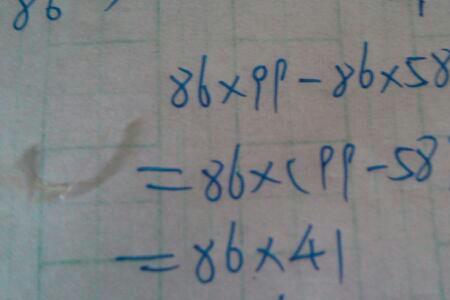 86
86×99-86×58
=86×(99-58
=86×41